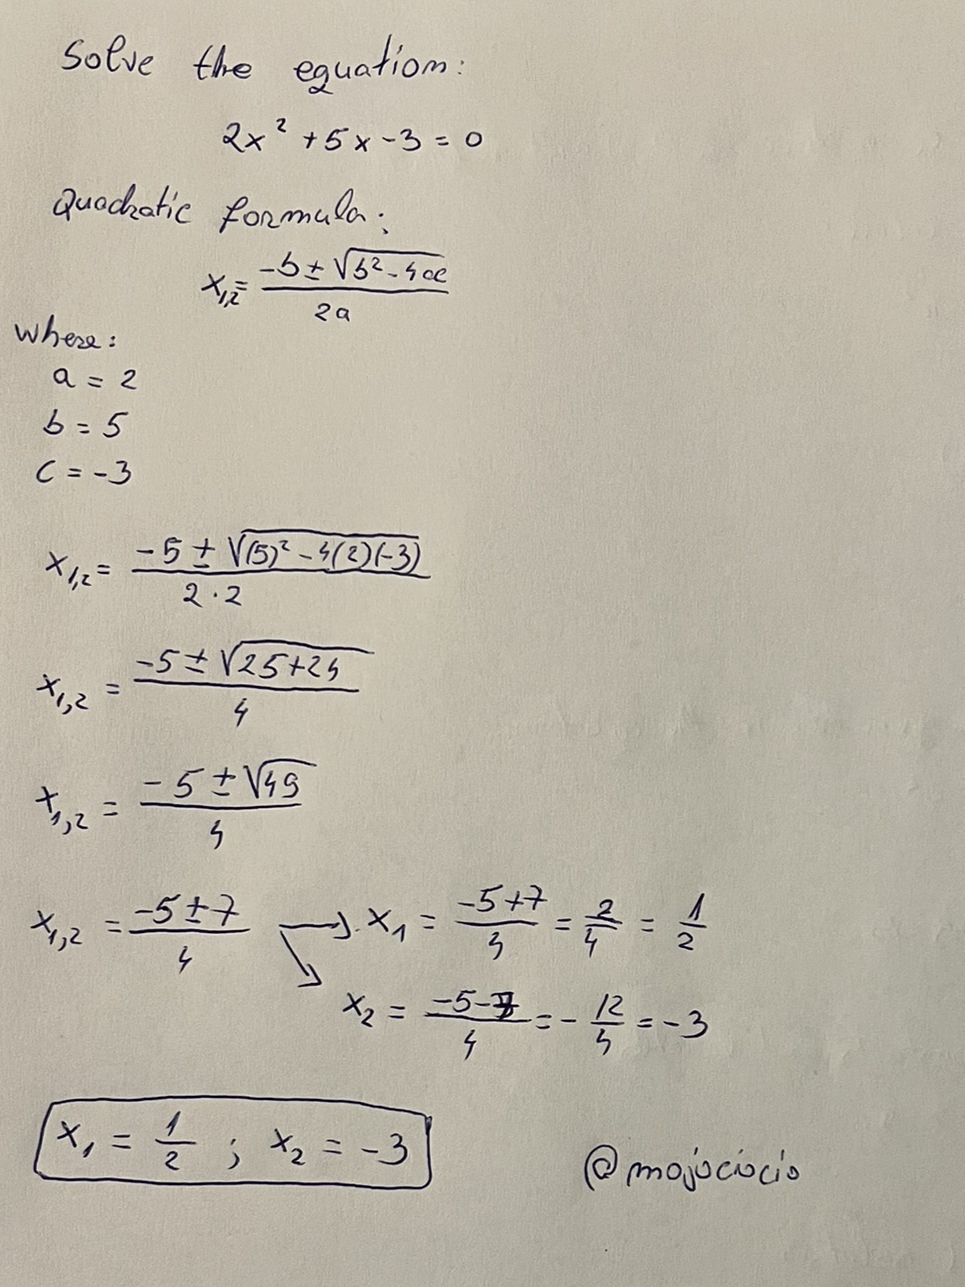 Solve the equation:
2x² + 5x - 3 = 0
Quadratic formula:
x₁,₂ = (-b ± √(b² - 4ac)) / 2a
where:
a = 2
b = 5
c = -3
x₁,₂ = (-5 ± √((5)² - 4(2)(-3))) / 2·2
x₁,₂ = (-5 ± √(25+24)) / 4
x₁,₂ = (-5 ± √49) / 4
x₁,₂ = (-5 ± 7) / 4 → x₁ = (-5+7) / 4 = 2/4 = 1/2
↘ x₂ = (-5-7) / 4 = -12/4 = -3
x₁ = 1/2 ; x₂ = -3
@mojociocio